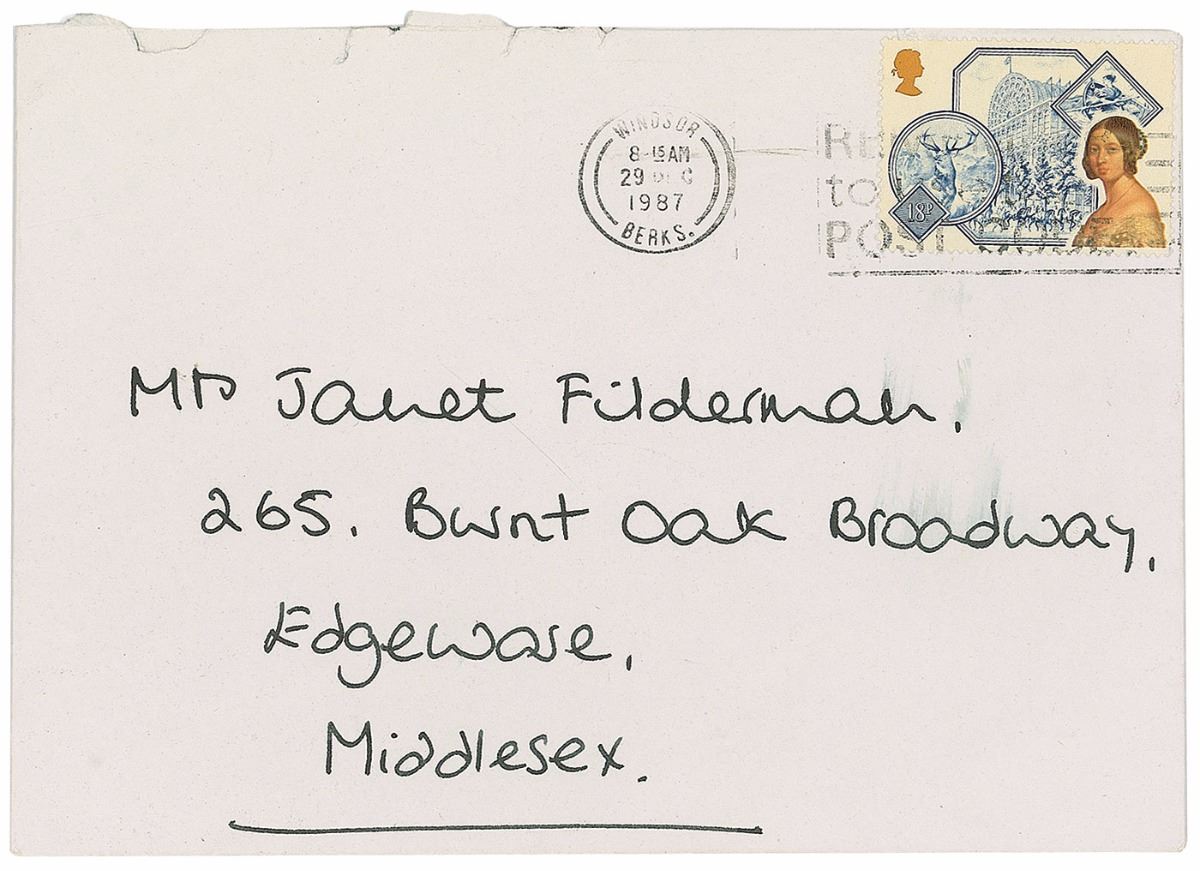 WINDSOR
8-15AM
29 DEC
1987
BERKS.
to
POST
18P
Mrs Janet Filderman,
265. Burnt Oak Broadway,
Edgeware,
Middlesex.